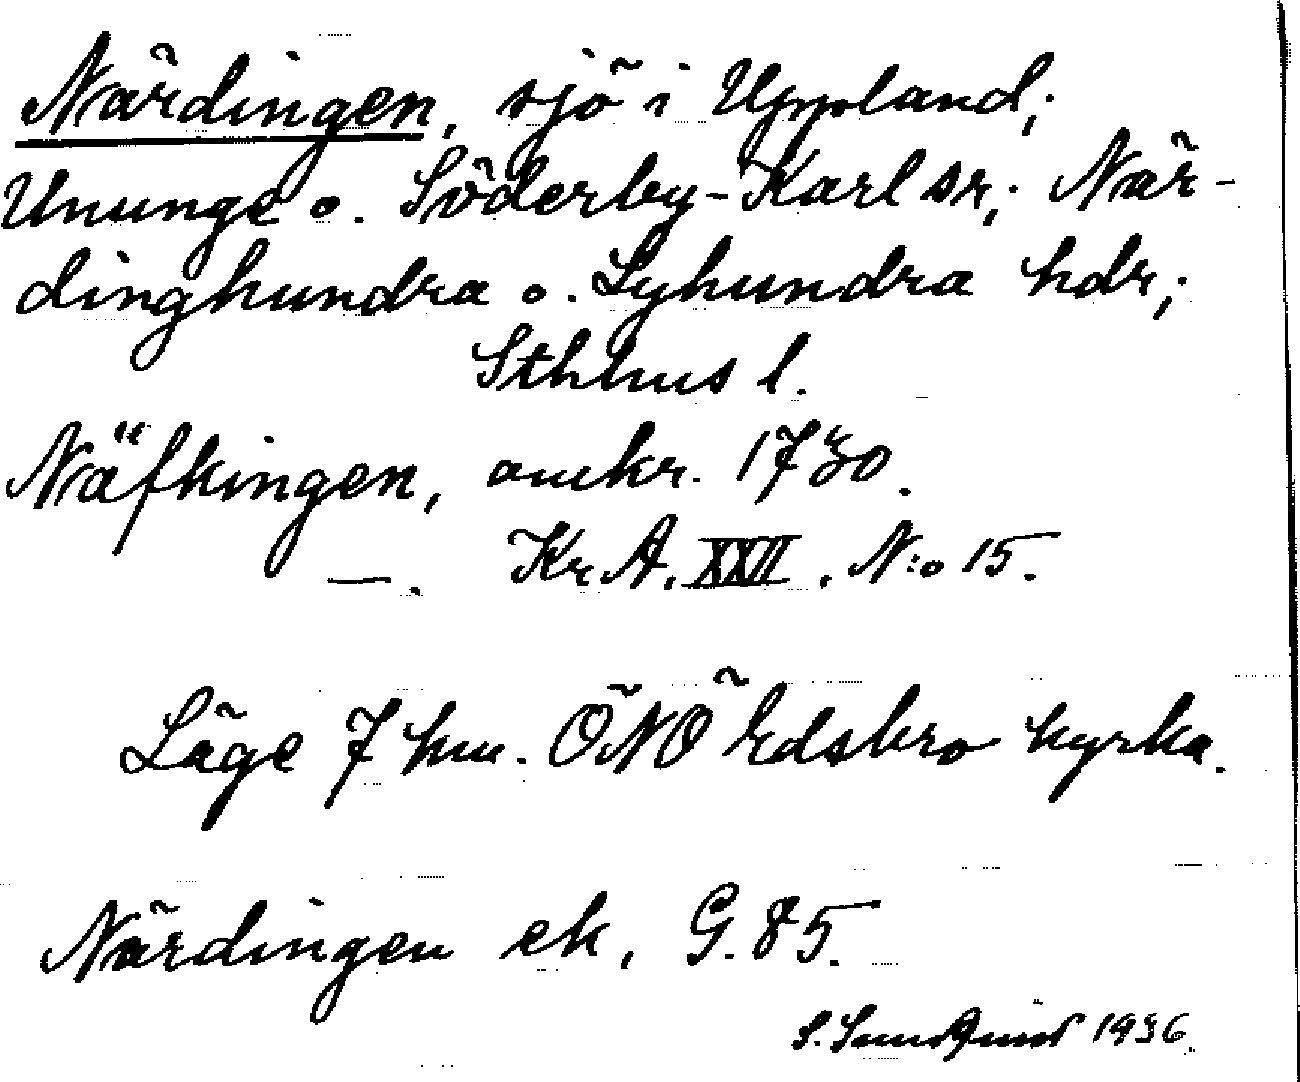 Närdingen, sjö i Uppland;
Ununge o. Söderby-Karl sr; När-
dinghundra o. Lyhundra hdr;
Sthlms l.
Näfkingen, omkr. 1730.
—. KrA. XXII. N:o 15.
Läge 7 km. ÖNÖ Edsbro kyrka.
Närdingen ek, G. 85.
S. Sundquist 1936.